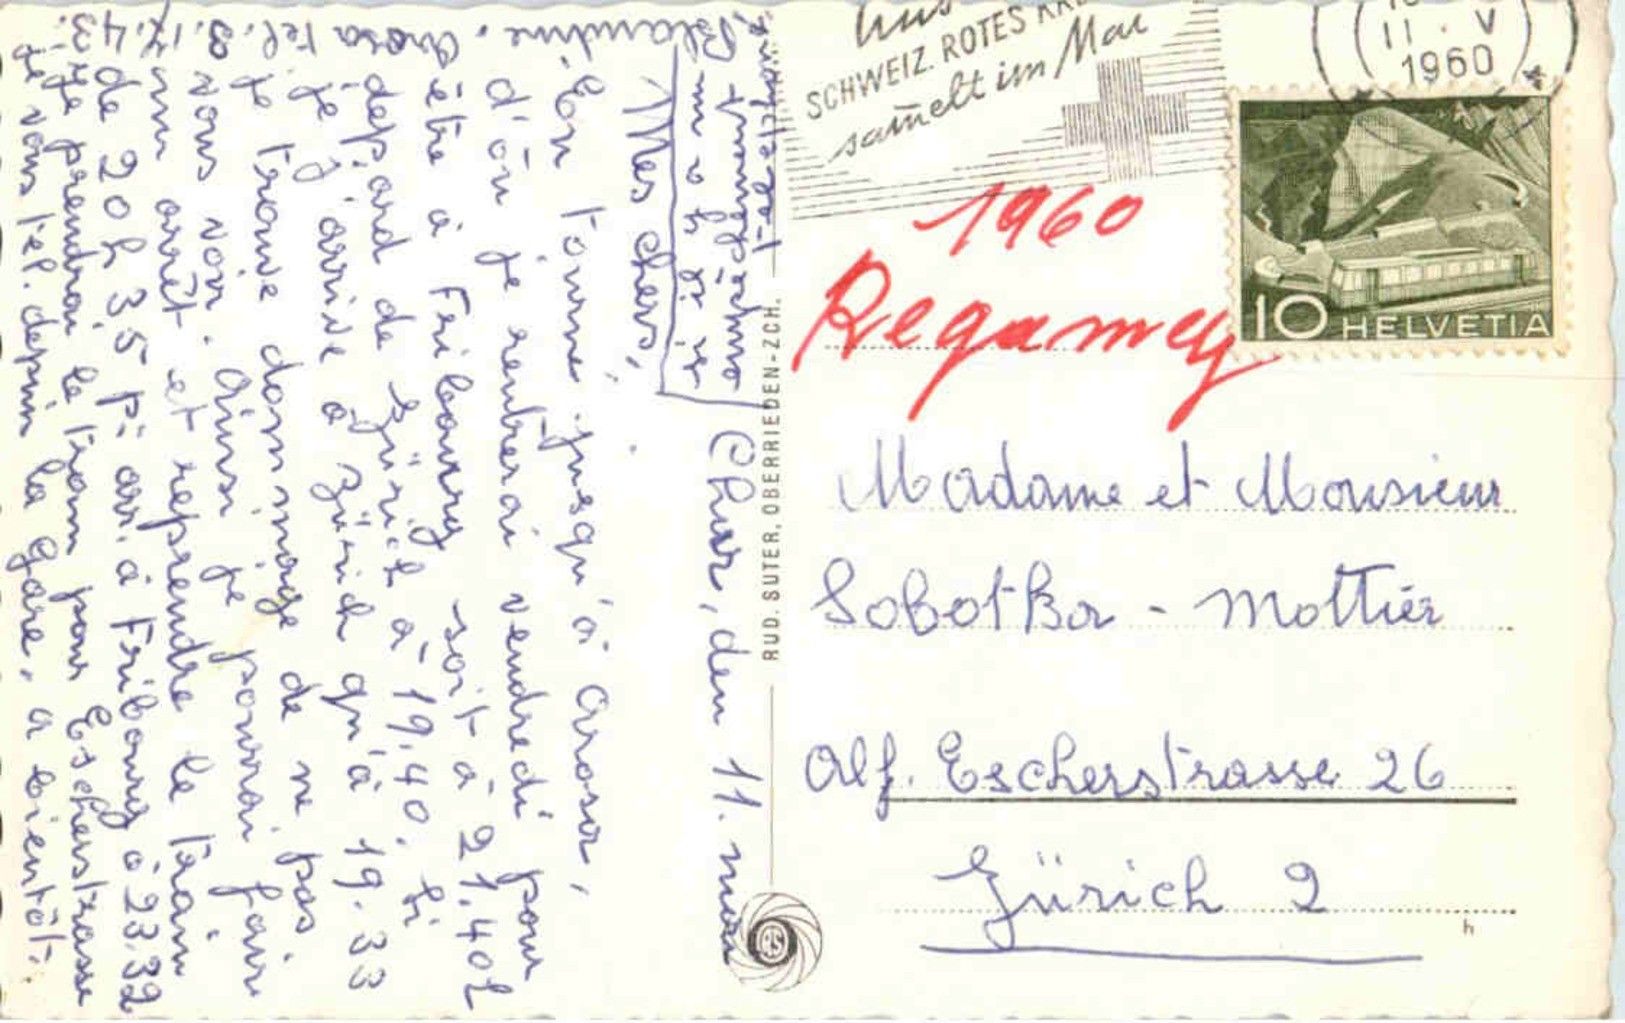 Chur, den 11. mai
Mes chers,
En tournée jusqu'à Arosa,
d'où je rentrerai vendredi pour
être à Fribourg soit à 21.40 h
départ de Zürich à 19.40. Si
je j'arrive à Zürich qu'à 19.33
je trouve dommage de ne pas
vous voir. Ainsi je pourrai faire
un arrêt et reprendre le train
de 20 h 35 p. arr. à Fribourg à 23.32
Je prendrai le tram pour Escherstrasse
je vous tél. depuis la gare, à bientôt.
Blandine. Arosa tél.
empêchement
téléphone
SCHWEIZ. ROTES KRE
sam̅elt im Mai
11. V
1960
10 HELVETIA
1960
Regamey
Madame et Monsieur
Sobotka - Mottier
Alf. Escherstrasse 26
Zürich 2
h
RUD. SUTER, OBERRIEDEN-ZCH.
RS